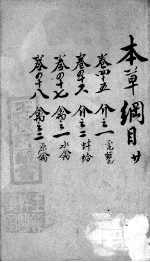 本草綱目 廿
卷四十五 介之一 龜鱉
卷四十六 介之二 蚌蛤
卷四十七 禽之一 水禽
卷四十八 禽之二 原禽